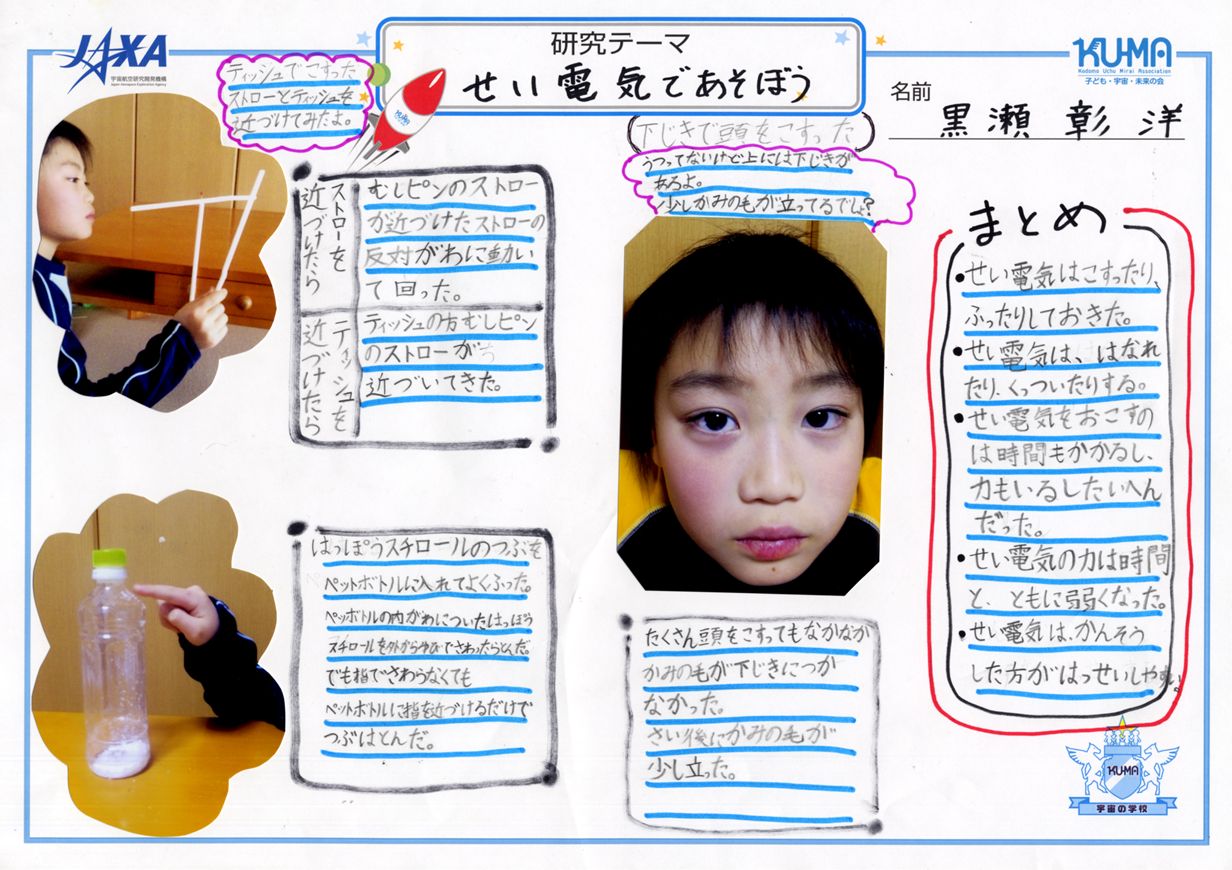 JAXA
宇宙航空研究開発機構
Japan Aerospace Exploration Agency
研究テーマ
せい電気であそぼう
KU-MA
Kodomo Uchu Mirai Association
子ども・宇宙・未来の会
名前
黒瀬 彰洋
ティッシュでこすった
ストローとティッシュを
近づけてみたよ。
KU-MA
ストローを
近づけたら
むしピンのストロー
が近づけたストローの
反対がわに動い
て回った。
ティッシュを
近づけたら
ティッシュの方むしピン
のストローが
近づいてきた。
はっぽうスチロールのつぶを
ペットボトルに入れてよくふった。
ペッボトルの内がわについたはっぽう
スチロールを外からゆびでさわったらとんだ。
でも指でさわらなくても
ペットボトルに指を近づけるだけで
つぶはとんだ。
下じきで頭をこすった
うつってないけど上には下じきが
あるよ。
少しかみの毛が立ってるでしょ?
たくさん頭をこすってもなかなか
かみの毛が下じきにつか
なかった。
さい後にかみの毛が
少し立った。
まとめ
•せい電気はこすったり、
ふったりしておきた。
•せい電気は、はなれ
たり、くっついたりする。
•せい電気をおこすの
は時間もかかるし、
力もいるしたいへん
だった。
•せい電気の力は時間
と、ともに弱くなった。
•せい電気は、かんそう
した方がはっせいしやすい。
KU-MA
宇宙の学校